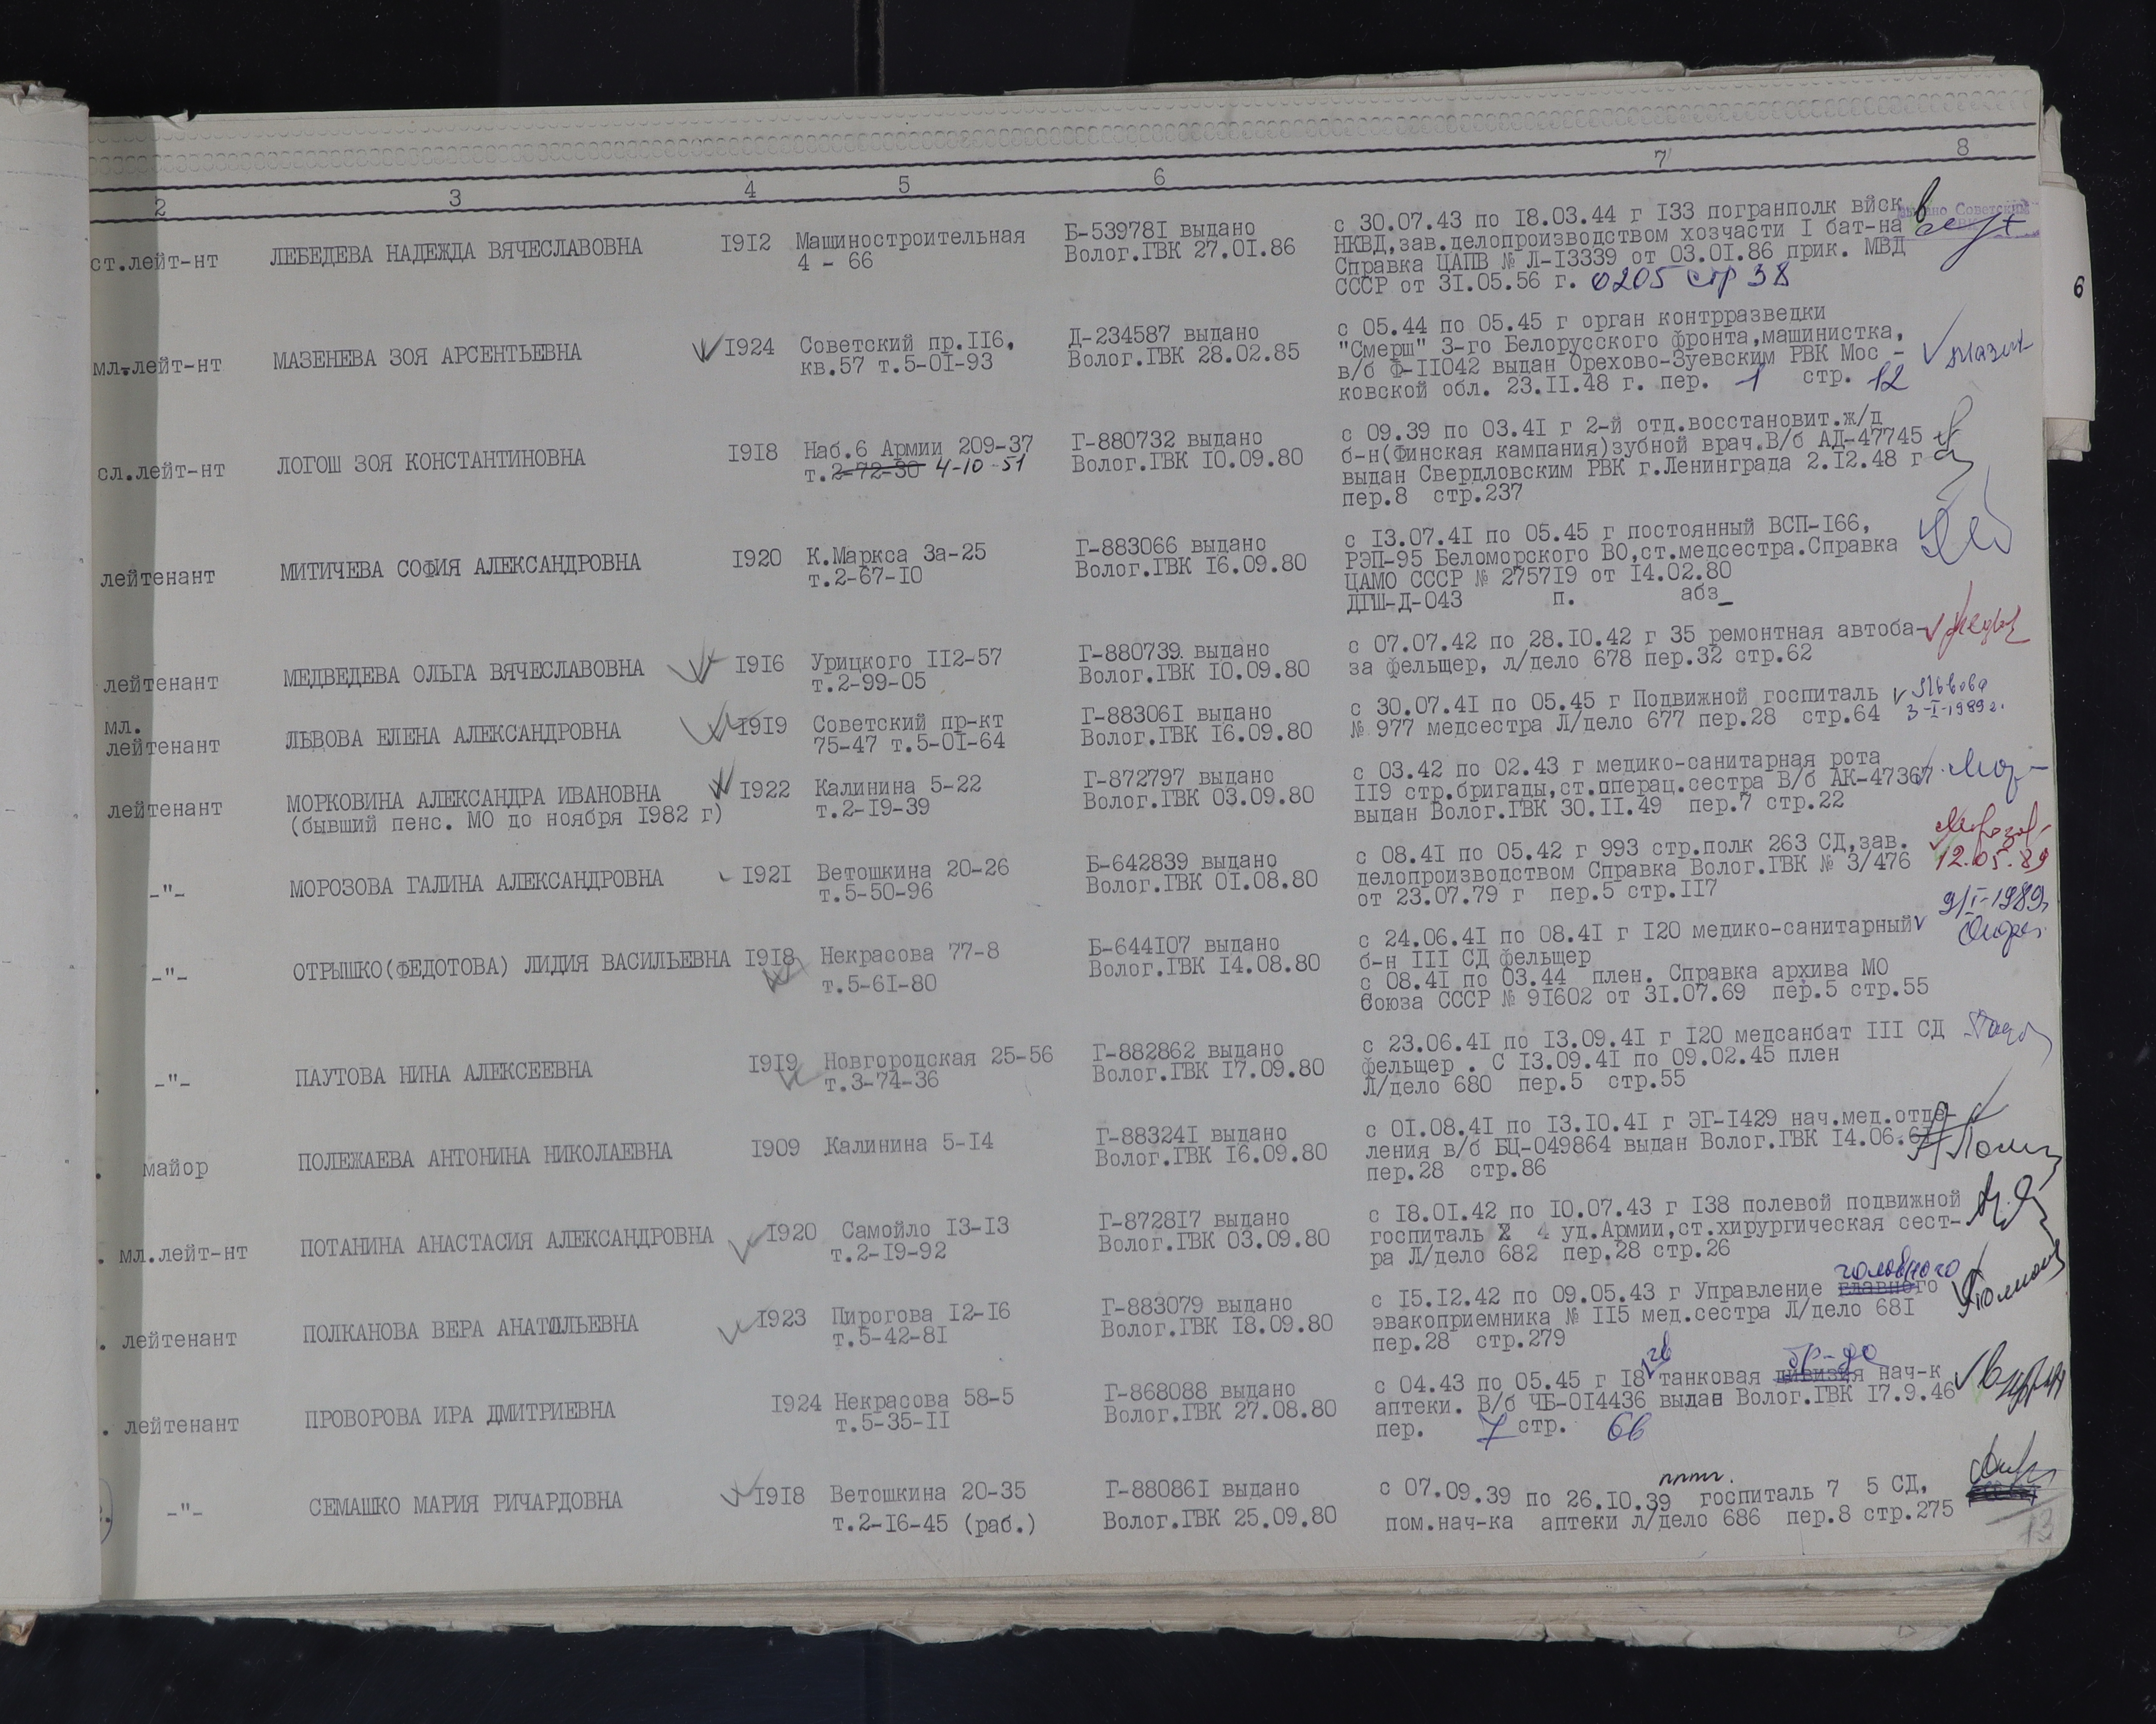 2 3 4 5 6 7 8
ст.лейт-нт ЛЕБЕДЕВА НАДЕЖДА ВЯЧЕСЛАВОВНА I9I2 Машиностроительная
4 - 66
Б-53978I выдано
Волог.ГВК 27.0I.86
с 30.07.43 по I8.03.44 г I33 погранполк вйск
НКВД,зав.делопроизводством хозчасти I бат-на
Справка ЦАПВ № Л-I3339 от 03.0I.86 прик. МВД
СССР от 3I.05.56 г. 0205 стр 38
мл.лейт-нт МАЗЕНЕВА ЗОЯ АРСЕНТЬЕВНА I924 Советский пр.II6,
кв.57 т.5-0I-93
Д-234587 выдано
Волог.ГВК 28.02.85
с 05.44 по 05.45 г орган контрразведки
"Смерш" 3-го Белорусского фронта,машинистка,
в/б Ф-II042 выдан Орехово-Зуевским РВК Мос -
ковской обл. 23.II.48 г. пер. 1 стр. 12
сл.лейт-нт ЛОГОШ ЗОЯ КОНСТАНТИНОВНА I9I8 Наб.6 Армии 209-37
т.2-72-30 4-10-51
Г-880732 выдано
Волог.ГВК I0.09.80
с 09.39 по 03.4I г 2-й отд.восстановит.ж/д
б-н(Финская кампания)зубной врач.В/б АД-47745
выдан Свердловским РВК г.Ленинграда 2.I2.48 г
пер.8 стр.237
лейтенант МИТИЧЕВА СОФИЯ АЛЕКСАНДРОВНА I920 К.Маркса 3а-25
т.2-67-I0
Г-883066 выдано
Волог.ГВК I6.09.80
с I3.07.4I по 05.45 г постоянный ВСП-I66,
РЭП-95 Беломорского ВО,ст.медсестра.Справка
ЦАМО СССР № 2757I9 от I4.02.80
ДГШ-Д-043 п. абз_
лейтенант МЕДВЕДЕВА ОЛЬГА ВЯЧЕСЛАВОВНА I9I6 Урицкого II2-57
т.2-99-05
Г-880739 выдано
Волог.ГВК I0.09.80
с 07.07.42 по 28.I0.42 г 35 ремонтная автоба-
за фельщер, л/дело 678 пер.32 стр.62
мл.
лейтенант ЛЬВОВА ЕЛЕНА АЛЕКСАНДРОВНА I9I9 Советский пр-кт
75-47 т.5-0I-64
Г-88306I выдано
Волог.ГВК I6.09.80
с 30.07.4I по 05.45 г Подвижной госпиталь
№ 977 медсестра Л/дело 677 пер.28 стр.64
Львова
3-I-1989г.
лейтенант МОРКОВИНА АЛЕКСАНДРА ИВАНОВНА
(бывший пенс. МО до ноября I982 г)
I922 Калинина 5-22
т.2-I9-39
Г-872797 выдано
Волог.ГВК 03.09.80
с 03.42 по 02.43 г медико-санитарная рота
II9 стр.бригады,ст.операц.сестра В/б АК-47367
выдан Волог.ГВК 30.II.49 пер.7 стр.22
-"- МОРОЗОВА ГАЛИНА АЛЕКСАНДРОВНА I92I Ветошкина 20-26
т.5-50-96
Б-642839 выдано
Волог.ГВК 0I.08.80
с 08.4I по 05.42 г 993 стр.полк 263 СД,зав.
делопроизводством Справка Волог.ГВК № 3/476
от 23.07.79 г пер.5 стр.II7
12.05.89
-"- ОТРЫШКО(ФЕДОТОВА) ЛИДИЯ ВАСИЛЬЕВНА I9I8 Некрасова 77-8
т.5-6I-80
Б-644I07 выдано
Волог.ГВК I4.08.80
с 24.06.4I по 08.4I г I20 медико-санитарный
б-н III СД фельщер
с 08.4I по 03.44 плен. Справка архива МО
Союза СССР № 9I602 от 3I.07.69 пер.5 стр.55
9/I-1989г
-"- ПАУТОВА НИНА АЛЕКСЕЕВНА I9I9 Новгородская 25-56
т.3-74-36
Г-882862 выдано
Волог.ГВК I7.09.80
с 23.06.4I по I3.09.4I г I20 медсанбат III СД
фельщер . С I3.09.4I по 09.02.45 плен
Л/дело 680 пер.5 стр.55
майор ПОЛЕЖАЕВА АНТОНИНА НИКОЛАЕВНА I909 Калинина 5-I4
Г-88324I выдано
Волог.ГВК I6.09.80
с 0I.08.4I по I3.I0.4I г ЭГ-I429 нач.мед.отде-
ления в/б БЦ-049864 выдан Волог.ГВК I4.06.6I
пер.28 стр.86
мл.лейт-нт ПОТАНИНА АНАСТАСИЯ АЛЕКСАНДРОВНА I920 Самойло I3-I3
т.2-I9-92
Г-8728I7 выдано
Волог.ГВК 03.09.80
с I8.0I.42 по I0.07.43 г I38 полевой подвижной
госпиталь 4 уд.Армии,ст.хирургическая сест-
ра Л/дело 682 пер.28 стр.26
лейтенант ПОЛКАНОВА ВЕРА АНАТОЛЬЕВНА I923 Пирогова I2-I6
т.5-42-8I
Г-883079 выдано
Волог.ГВК I8.09.80
головного
с I5.I2.42 по 09.05.43 г Управление главного
эвакоприемника № II5 мед.сестра Л/дело 68I
пер.28 стр.279
лейтенант ПРОВОРОВА ИРА ДМИТРИЕВНА I924 Некрасова 58-5
т.5-35-II
Г-868088 выдано
Волог.ГВК 27.08.80
гв бр-да
с 04.43 по 05.45 г I8 танковая дивизия нач-к
аптеки. В/б ЧБ-0I4436 выдан Волог.ГВК I7.9.46
пер. 7 стр. 66
-"- СЕМАШКО МАРИЯ РИЧАРДОВНА I9I8 Ветошкина 20-35
т.2-I6-45 (раб.)
Г-88086I выдано
Волог.ГВК 25.09.80
с 07.09.39 по 26.I0.39 госпиталь 7 5 СД,
пом.нач-ка аптеки л/дело 686 пер.8 стр.275
13
6